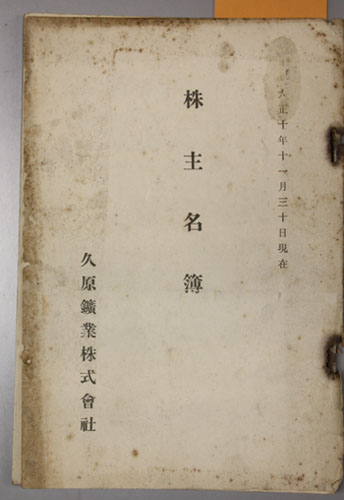 大正十年十一月三十日現在
株主名簿
久原鑛業株式會社